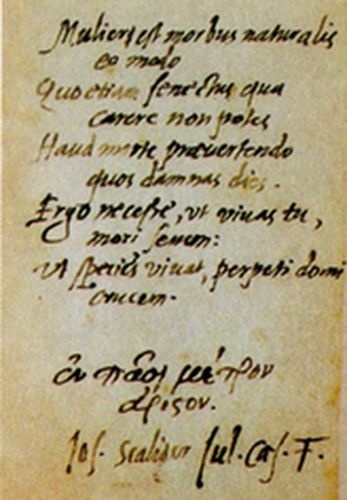 Mulier est morbus naturalis
eo modo
Quo etiam senectus qua
carere non potes
Haud morte prævertendo
quos damnas dies.
Ergo necesse, ut vivas tu,
mori senem:
Ut species vivat, perpeti domi
crucem.
ἐν πᾶσι μέτρον
ἄριστον.
Ios. Scaliger Jul. Cæs. F.